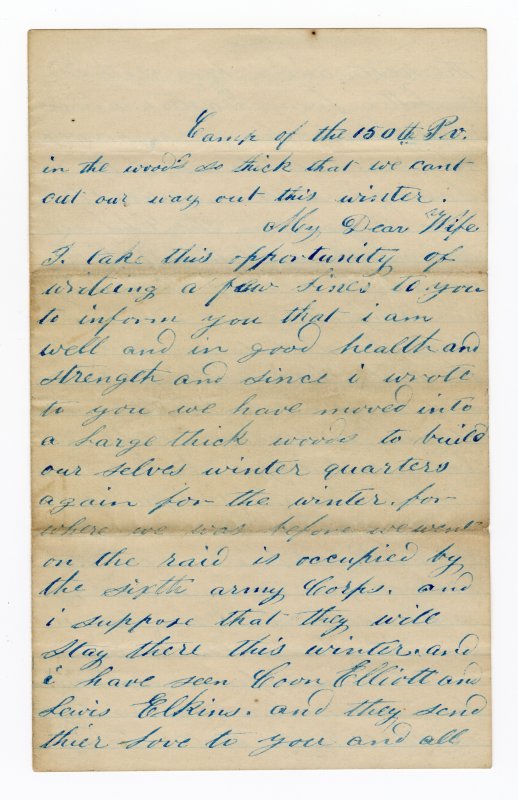 Camp of the 150th P.v.
in the woods so thick that we cant
cut our way out this winter.
My Dear Wife
I take this opportunity of
writeing a few lines to you
to inform you that i am
well and in good health and
strength and since i wrote
to you we have moved into
a large thick woods to build
our selves winter quarters
again for the winter. for
where we was before we went
on the raid is occupied by
the sixth army Corps. and
i suppose that they will
stay there this winter. and
i have seen Coon Elliott and
Lewis Elkins. and they send
thier love to you and all